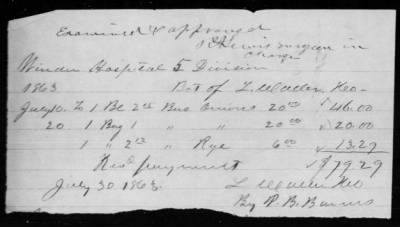 Examined & approved
Surgeon in
Charge
Winder Hospital 5 Division
1863 Bot of L. Wadden &co
July 10 To 1 Bl 2nd 20.00 $46.00
20 1 Bag 1 " " 20.00 $20.00
1 " 2nd " Rye 6.00 $13.29
Recd payment $79.29
July 30 1863. L Wadden &co
By P. B. Burns